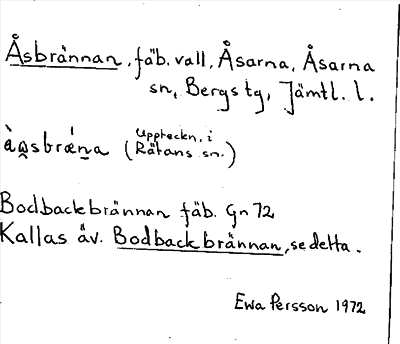 Åsbrännan, fäb. vall, Åsarna, Åsarna
sn, Bergs tg, Jämtl. l.
Uppteckn. i
(Rätans sn.)
Bodbackbrännan fäb. Gn 72
Kallas äv. Bodbackbrännan, se detta.
Ewa Persson 1972